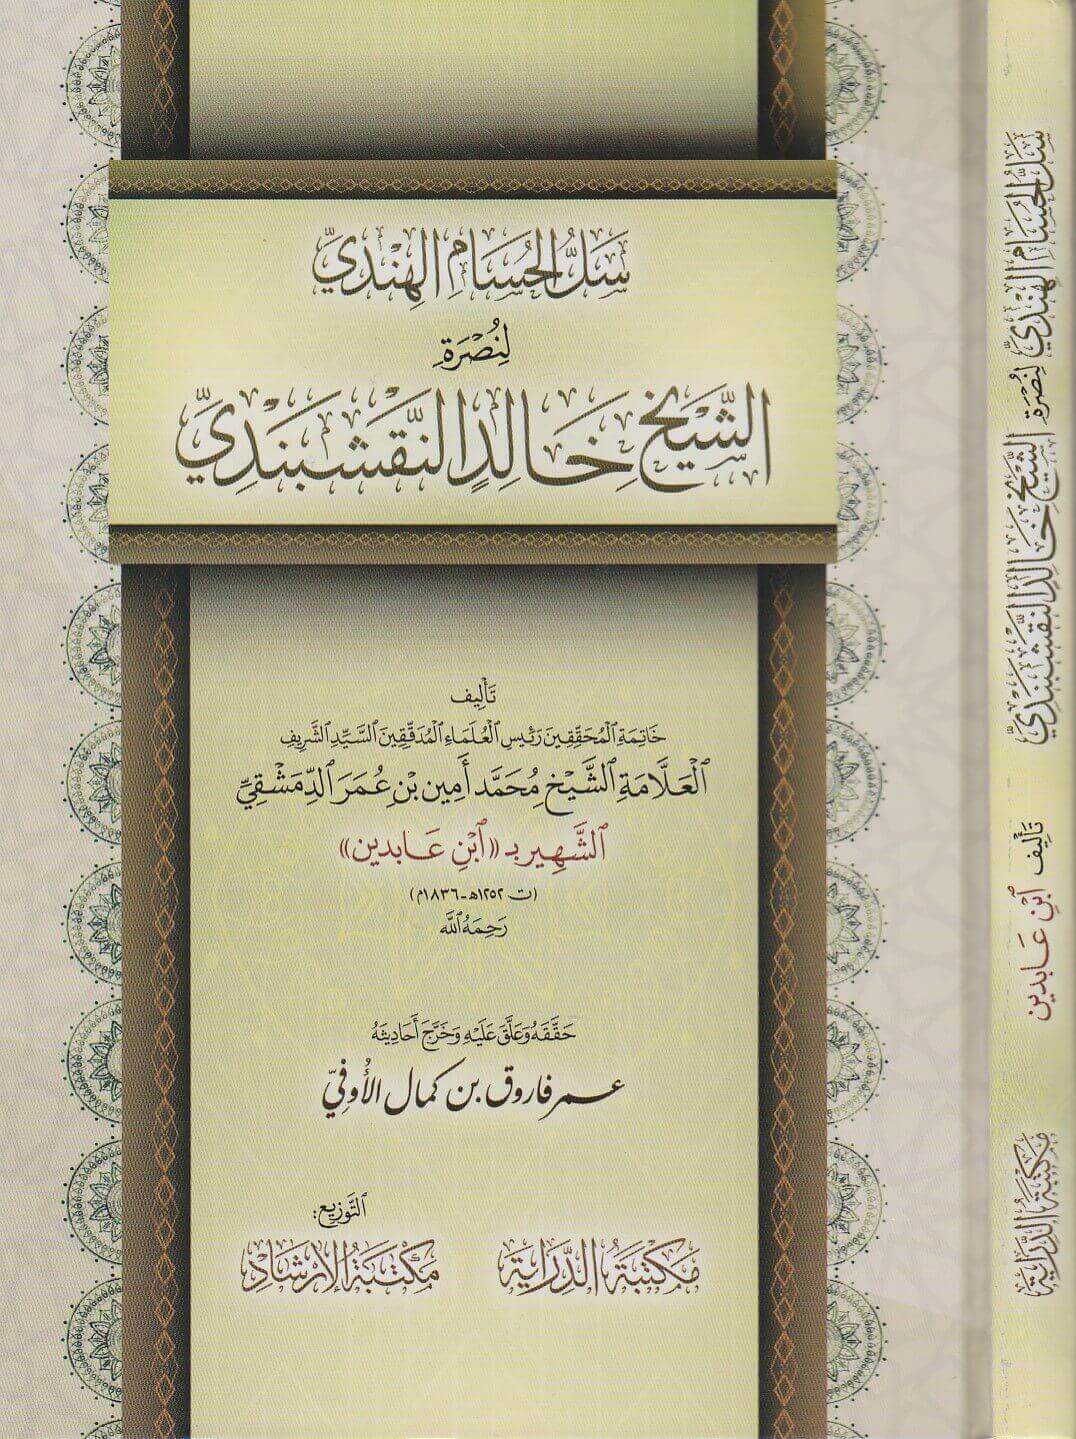 سَلُّ الحُسَامِ الهِنْدِيِّ
لِنُصْرَةِ
الشَّيْخِ خَالِدٍ النَّقْشَبَنْدِيِّ
تَأْلِيف
خَاتِمَةِ الْمُحَقِّقِينَ رَئِيسِ الْعُلَمَاءِ الْمُدَقِّقِينَ السَّيِّدِ الشَّرِيفِ
الْعَلَّامَةِ الشَّيْخِ مُحَمَّد أَمِين بْنِ عُمَرَ الدِّمَشْقِيِّ
الشَّهِيرِ بـ «ابْنِ عَابدين»
(ت ١٢٥٢هـ-١٨٣٦م)
رَحِمَهُ اللَّه
حَقَّقَهُ وَعَلَّقَ عَلَيْهِ وَخَرَّجَ أَحَادِيثَهُ
عمر فاروق بن كمال الأُوفيّ
التَّوْزِيع:
مَكتبَةُ الدِّرَايَة
مَكْتَبَةُ الإِرْشَاد
سَلُّ الحُسَامِ الهِنْدِيِّ لِنُصْرَةِ الشَّيْخِ خَالِدٍ النَّقْشَبَنْدِيِّ
تَأْلِيف ابْنِ عَابدين
مَكتبَةُ الدِّرَايَة